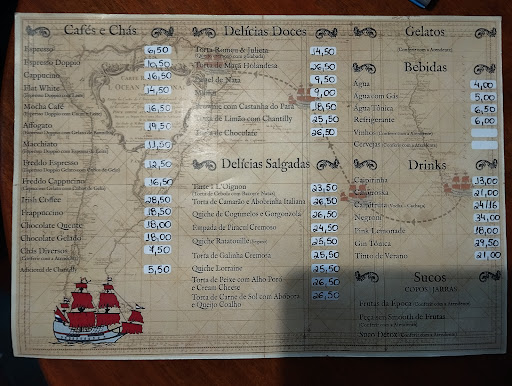 Cafés e Chás
Espresso 6,50
Espresso Doppio 10,50
Cappucino 16,50
Flat White 14,50
Mocha Café 16,50
Affogato 19,50
Macchiato 11,50
Freddo Espresso 12,50
Freddo Cappucino 16,50
Irish Coffee 28,50
Frappuccino 18,50
Chocolate Quente 18,00
Chocolate Gelado 18,00
Chás Diversos 7,50
(Confira com a Atendente)
Adicional de Chantilly 5,50
Delícias Doces
Torta Romeu & Julieta 14,50
Torta de Maçã Holandesa 26,50
9,50
9,00
Brownie com Castanha do Pará 18,50
Torta de Limão com Chantilly 25,50
Torta de Chocolate 26,50
Delícias Salgadas
Tarte à L'Oignon 23,50
Torta de Camarão e Abobrinha Italiana 26,50
Quiche de Cogumelos e Gorgonzola 26,50
Empada de Picanha Cremosa 24,50
Quiche Ratatouille (Vegano) 25,50
Torta de Galinha Cremosa 25,50
Quiche Lorraine 25,50
Torta de Peixe com Alho Poró e Cream Cheese 26,50
Torta de Carne de Sol com Abóbora e Queijo Coalho 26,50
Gelatos
(Confira com a Atendente)
Bebidas
Água 4,00
Água com Gás 5,00
Água Tônica 6,50
Refrigerante 6,00
Vinhos (Confira com a Atendente)
Cervejas (Confira com a Atendente)
Drinks
Caipirinha 13,00
Caipiroska 21,00
Caipifruta 24/16
Negroni 34,00
Pink Lemonade 18,00
Gin Tônica 29,50
Tinto de Verano 21,00
Sucos
COPOS / JARRAS
Frutas da Época (Confira com a Atendente)
Smooth de Frutas
(Confira com a Atendente)
Suco Detox (Confira com a Atendente)